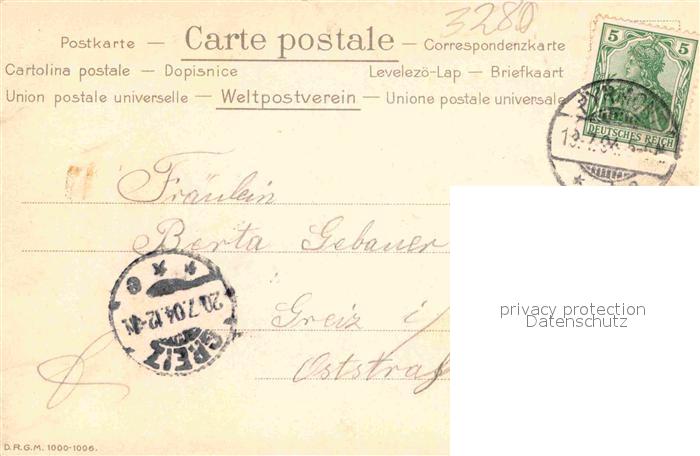 3280
Postkarte — Carte postale — Correspondenzkarte
Cartolina postale — Dopisnice Levelezö-Lap — Briefkaart
Union postale universelle — Weltpostverein — Unione postale universale
5 5
DEUTSCHES REICH
Fräulein
Berta Gebauer
Greiz i
Oststraß
GREIZ
20.7.04.12-1N
e
privacy protection
Datenschutz
D.R.G.M. 1000-1006.